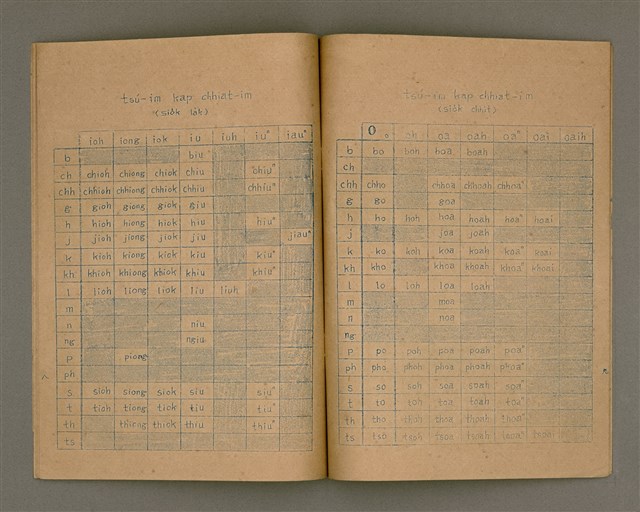 tsú-im kap chhiat-im
(sio̍k la̍k)
ioh iong iok iu iuh iuⁿ iauⁿ
b biu
ch chioh chiong chiok chiu chiuⁿ
chh chhioh chhiong chhiok chhiu chhiuⁿ
g gioh giong giok giu
h hioh hiong hiok hiu hiuⁿ
j jioh jiong jiok jiu jiauⁿ
k kioh kiong kiok kiu kiuⁿ
kh khioh khiong khiok khiu khiuⁿ
l lioh liong liok liu liuh
m
n niu
ng ngiu
p piong
ph
s sioh siong siok siu siuⁿ
t tioh tiong tiok tiu tiuⁿ
th thiong thiok thiu thiuⁿ
ts
tsú-im kap chhiat-im
O oh oa oah oaⁿ oai oaih
b bo boh boa boah
ch
chh chho chhoa chhoah chhoaⁿ
g go goa
h ho hoh hoa hoah hoaⁿ hoai
j joa joah
k ko koh koa koah koaⁿ koai
kh kho khoa khoah khoaⁿ khoai
l lo loh loa loah
m moa
n noa
ng
p po poh poa poah poaⁿ
ph pho phoh phoa phoah phoaⁿ
s so soh soa soah soaⁿ
t to toh toa toah toaⁿ
th tho thoh thoa thoah thoaⁿ
ts tso tsoh tsoa tsoah tsoaⁿ